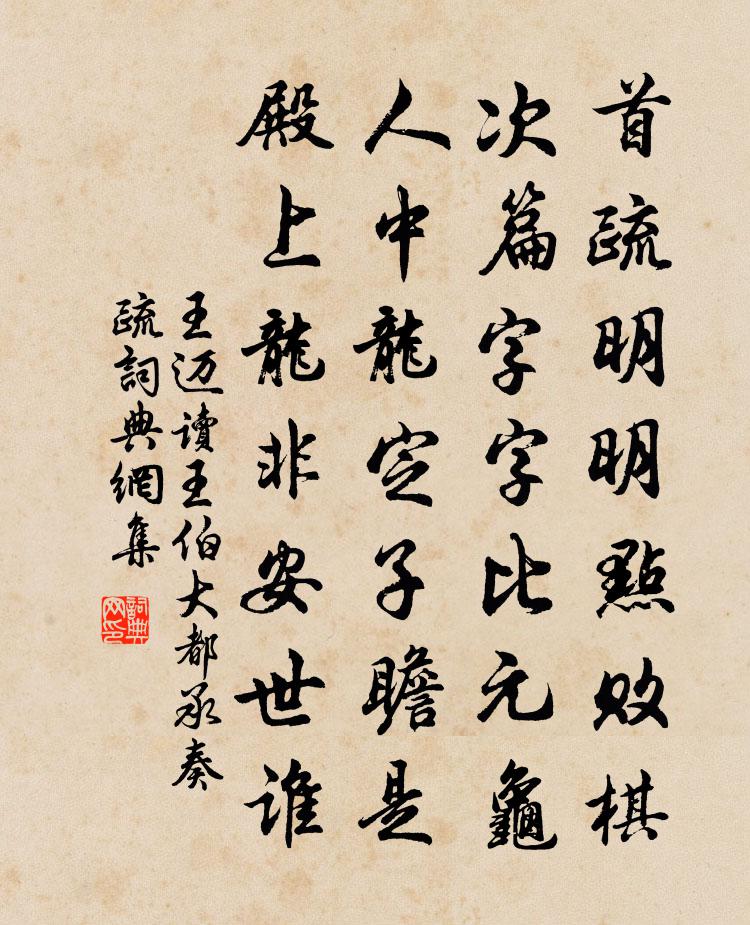 首疏明明點敗棋
次篇字字比元龜
人中龍定子瞻是
殿上龍非安世誰
王迈讀王伯大都承奏
疏詞典網集
詞典网印